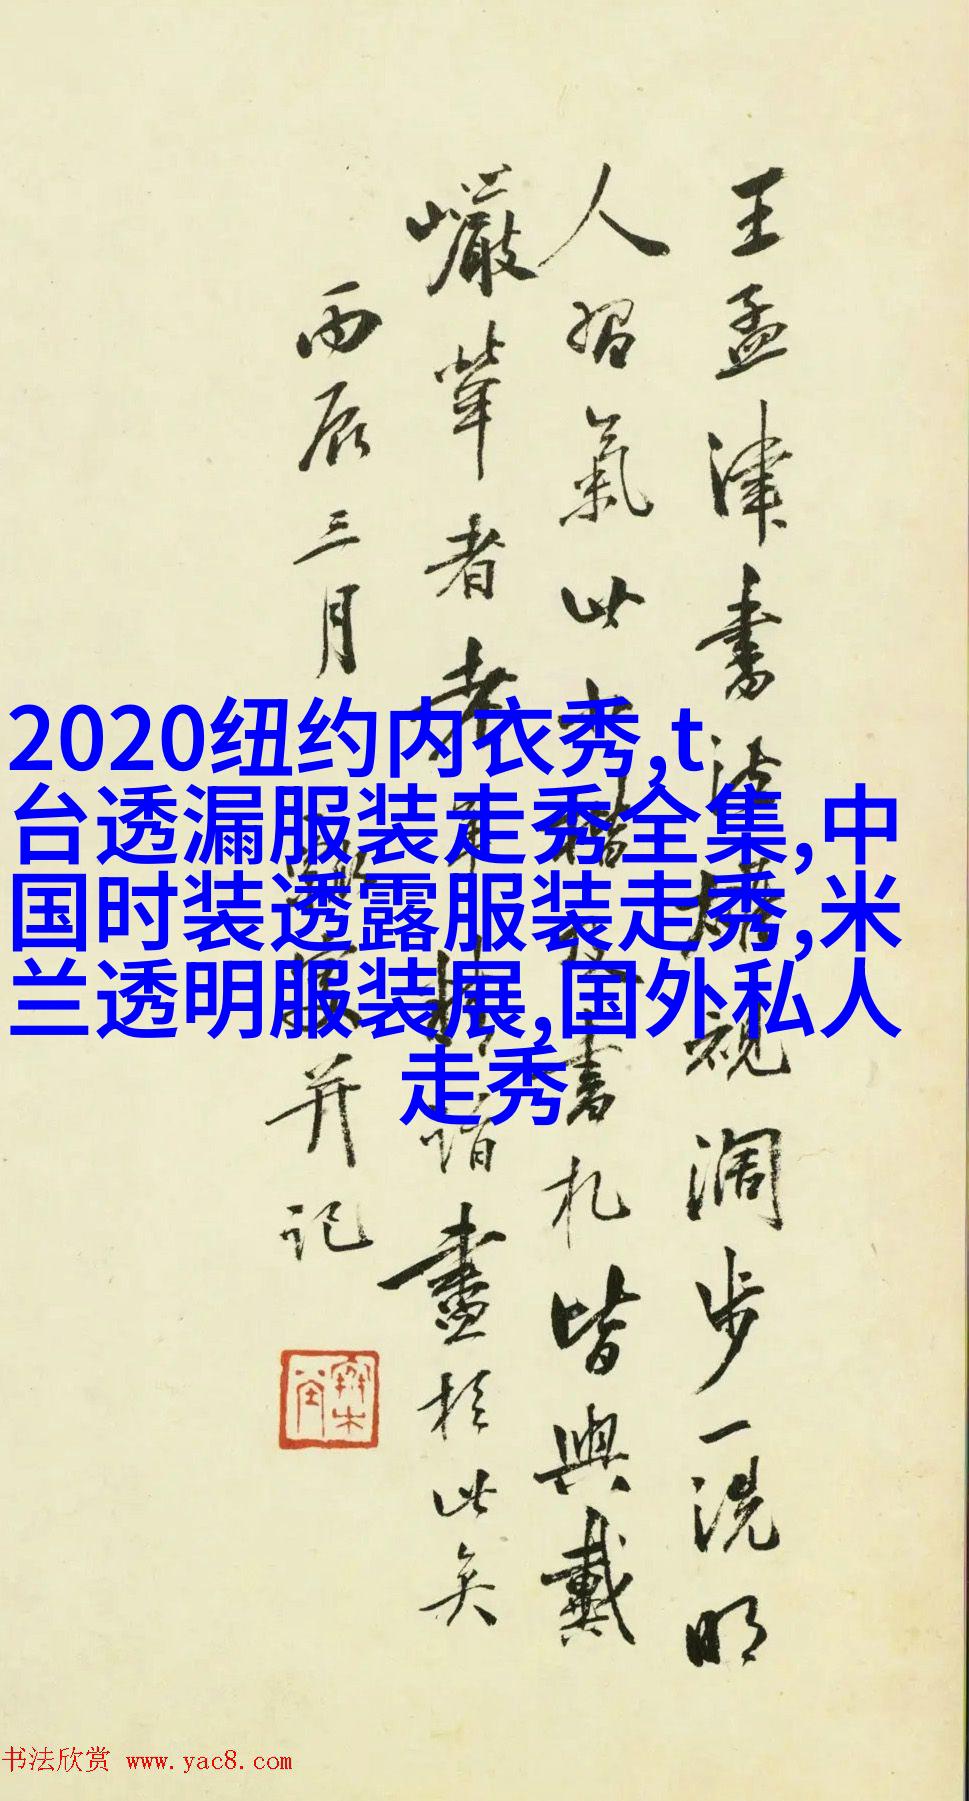 王孟津書法横視阔步一洗明
人習氣此
書札皆與戴
巖犖者
畫於此矣
丙辰三月
并記
2020纽约内衣秀,t
台透漏服装走秀全集,中
国时装透露服装走秀,米
兰透明服装展,国外私人
走秀
书法欣赏 www.yac8.com